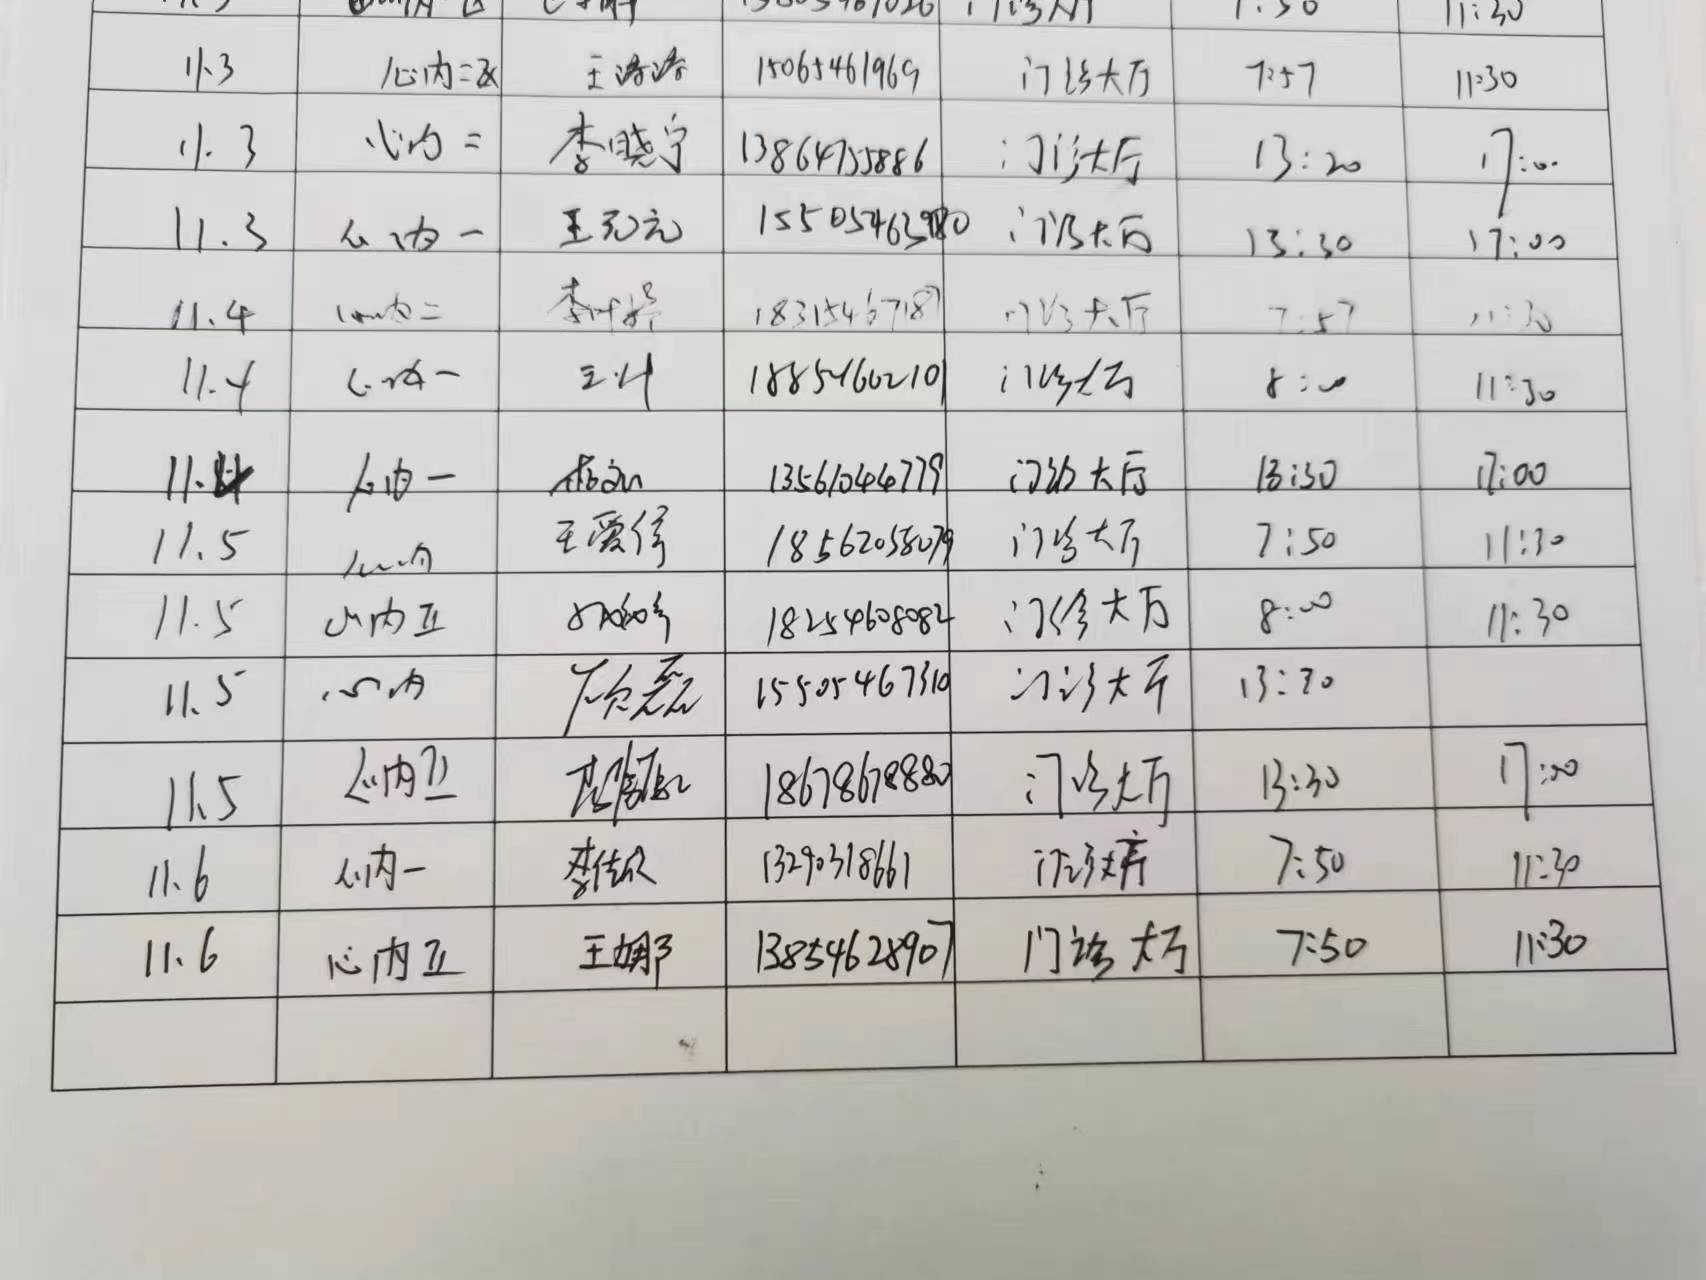 7:50 11:30
11.3 心内二区 王潞潞 15065461969 门诊大厅 7:57 11:30
11.3 心内二 李晓宁 13864755886 门诊大厅 13:20 17:00
11.3 心内一 王元元 门诊大厅 13:30 17:00
11.4 心内二 18315467187 门诊大厅 7:57 11:30
11.4 心内一 18854660210 门诊大厅 8:00 11:30
11.4 心内一 13561044779 门诊大厅 13:30 17:00
11.5 心内 王爱信 18562058079 门诊大厅 7:50 11:30
11.5 心内五 18254608082 门诊大厅 8:00 11:30
11.5 心内 15505467310 门诊大厅 13:30
11.5 心内五 18678678880 门诊大厅 13:30 17:00
11.6 心内一 李佳欣 13290318661 门诊大厅 7:50 11:30
11.6 心内五 王娜 13854628907 门诊大厅 7:50 11:30